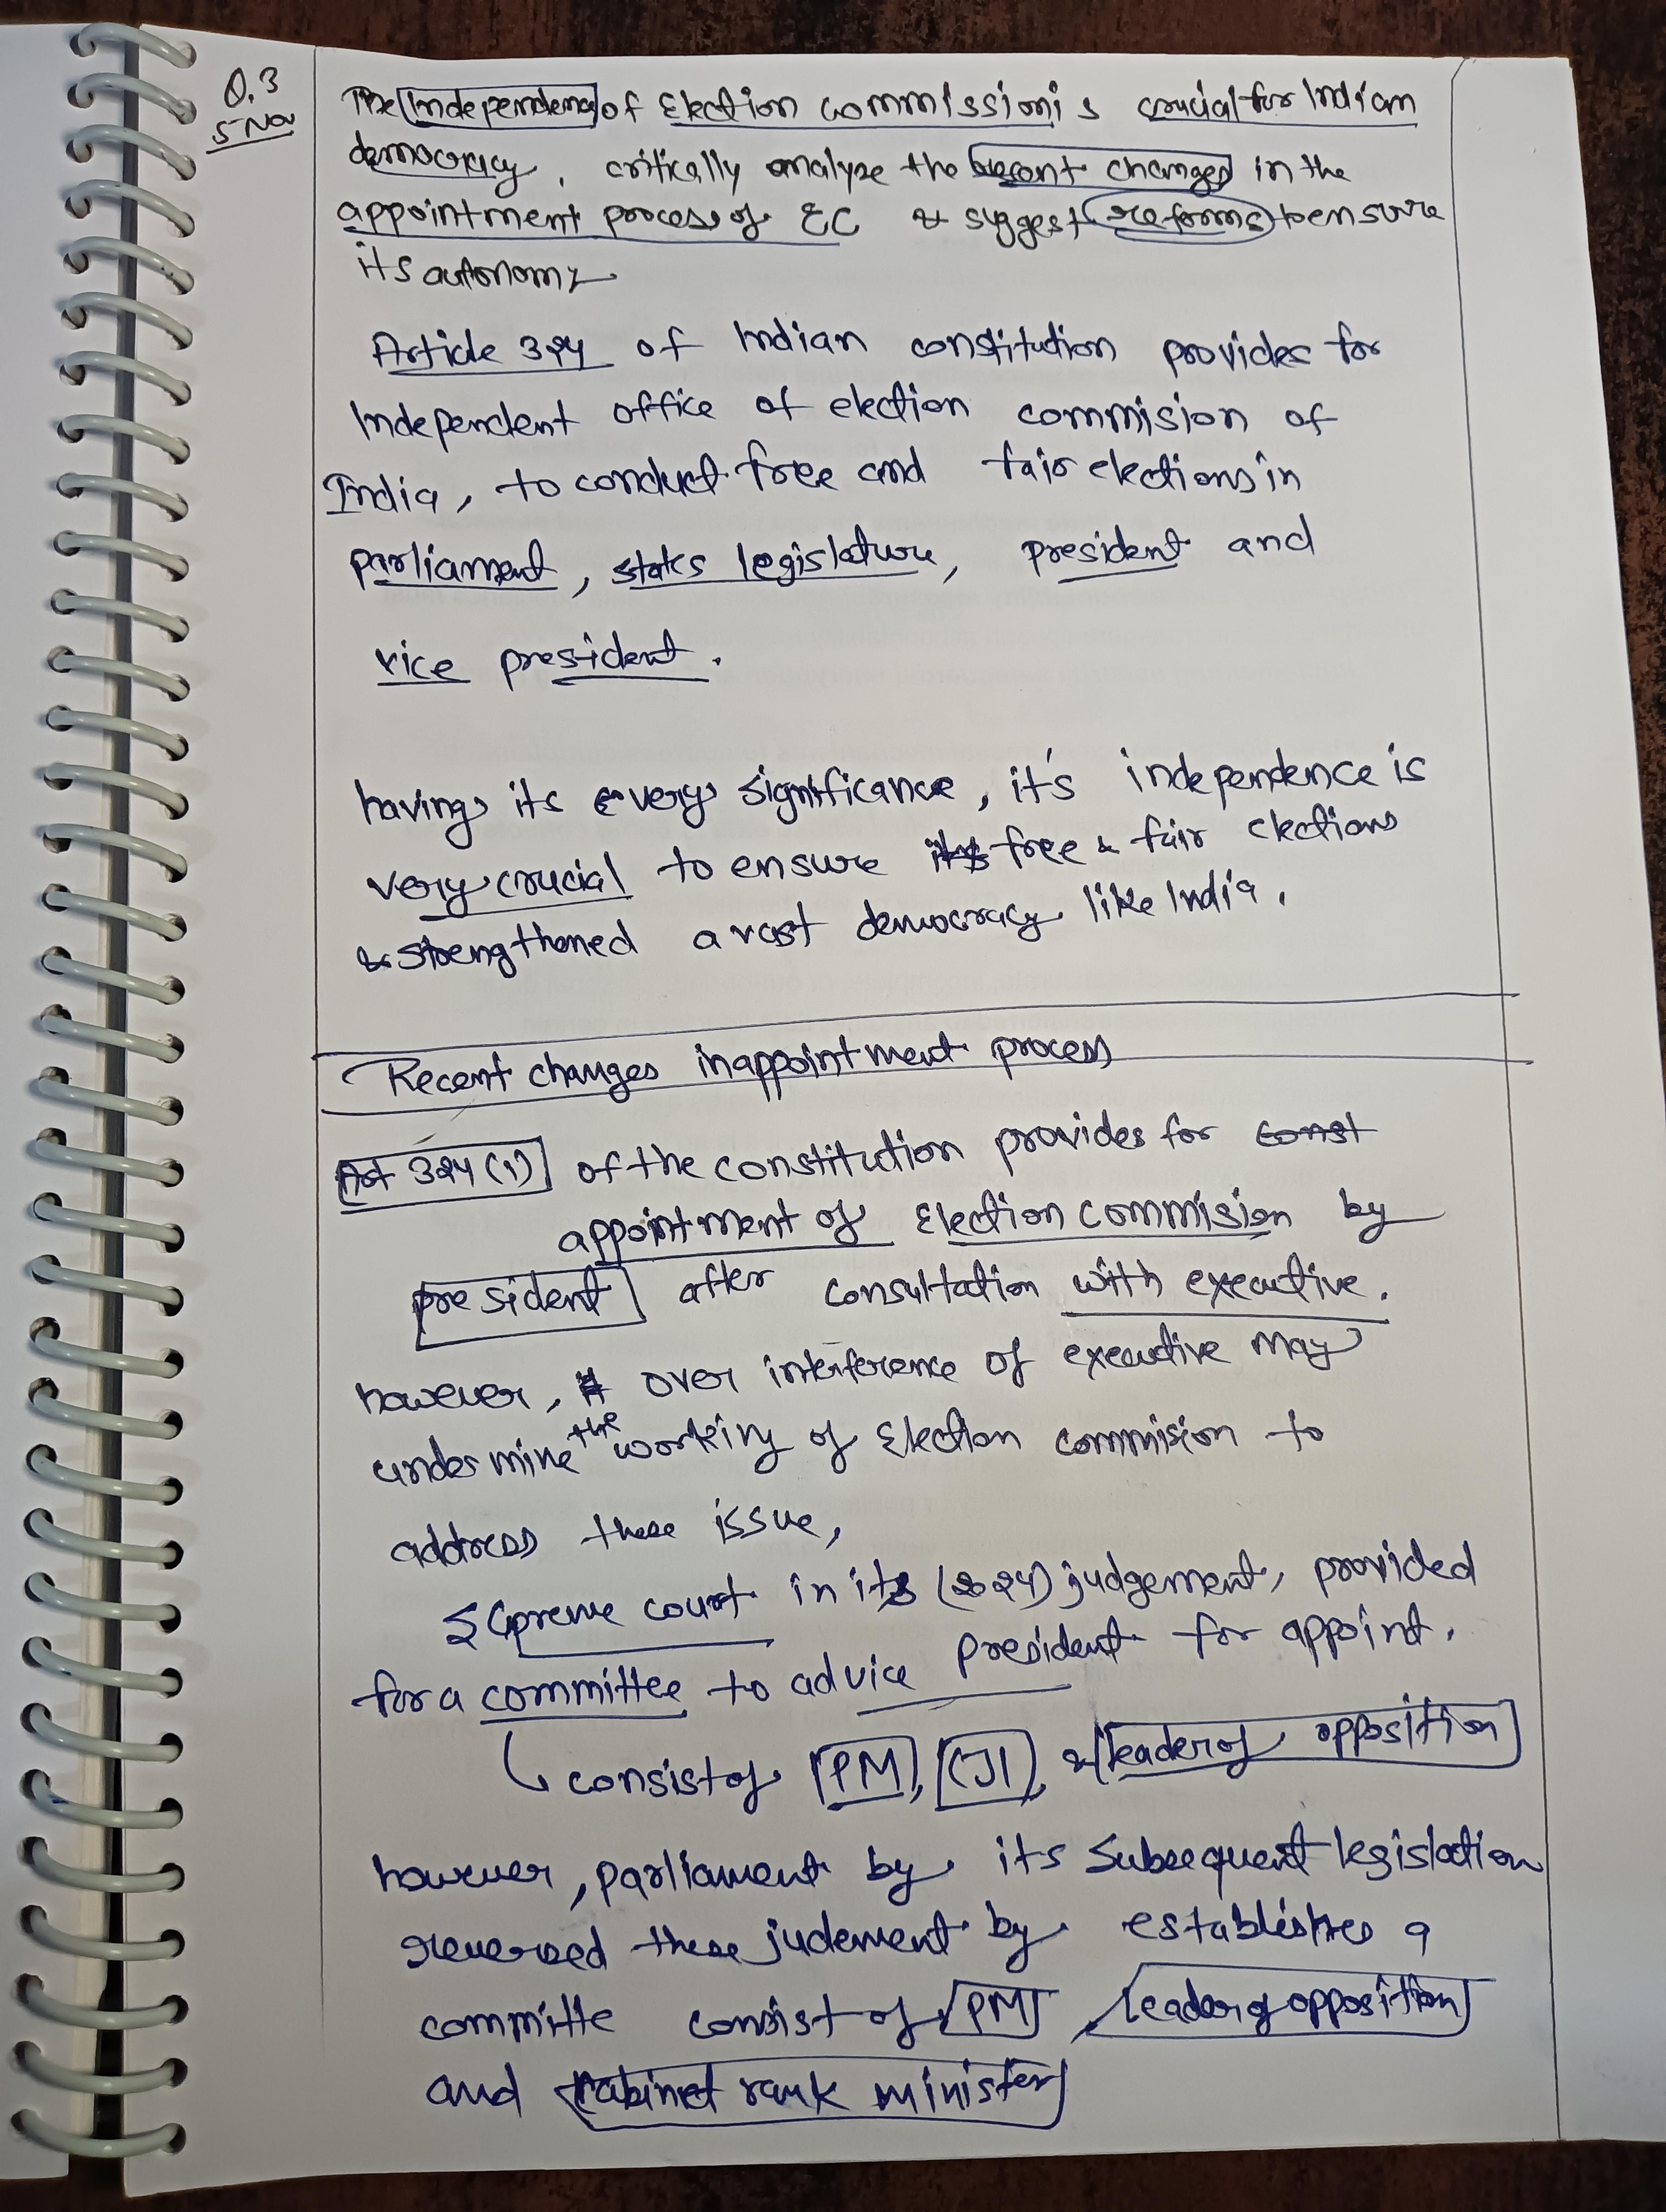 Q.3
5 Nov
The Independence of Election commission is crucial for Indian
democracy. critically analyze the recent changes in the
appointment process of EC & suggest reforms to ensure
its autonomy
Article 324 of Indian constitution provides for
Independent office of election commision of
India, to conduct free and fair elections in
parliament, states legislature, president and
vice president.
having its every significance, it's independence is
very crucial to ensure free & fair elections
& strengthened a vast democracy like India.
Recent changes in appointment process
Art 324 (1) of the constitution provides for const
appointment of Election commision by
president after consultation with executive.
however, over interference of executive may
undermine the working of Election commision to
address these issue,
Supreme court in its (2024) judgement, provided
for a committee to advice president for appoint.
consist of PM, CJI, & leader of opposition
however, parliament by its subsequent legislation
reversed these judement by establishes a
committe consist of PM, leader of opposition
and cabinet rank minister